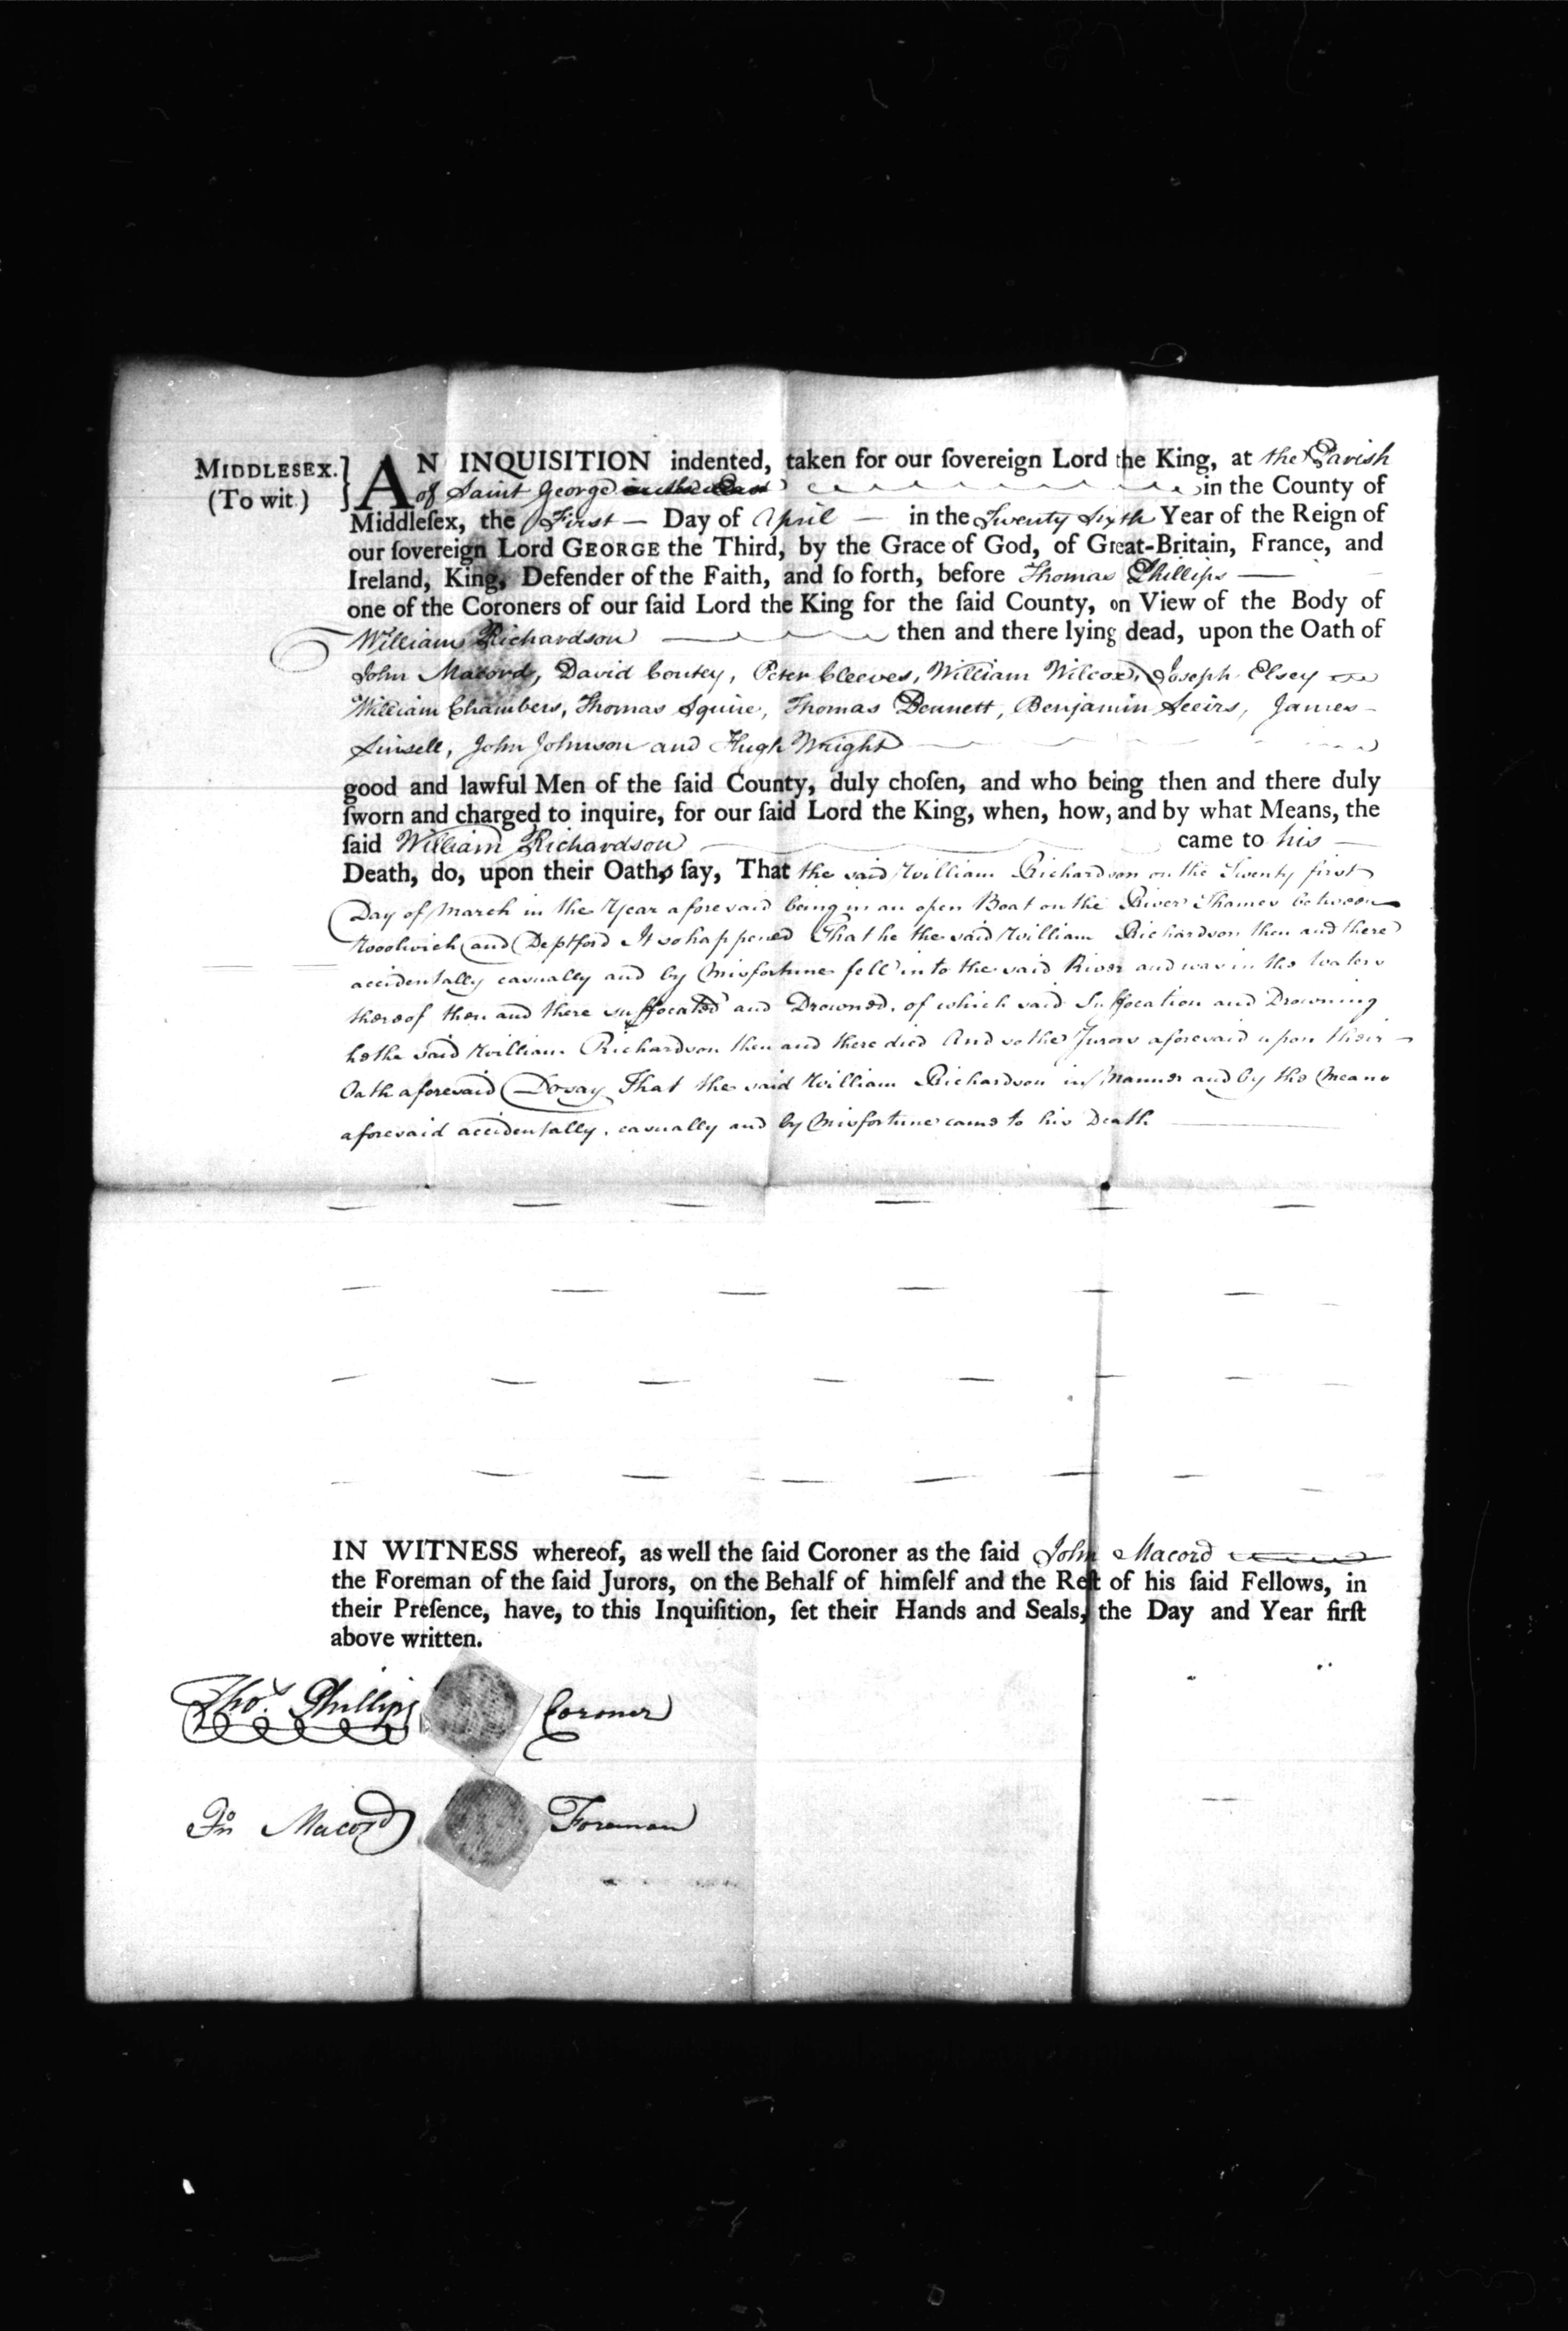 MIDDLESEX. } AN INQUISITION indented, taken for our ſovereign Lord the King, at the Parish
(To wit.) of Saint George in the East in the County of
Middleſex, the First Day of April in the Twenty Sixth Year of the Reign of
our ſovereign Lord GEORGE the Third, by the Grace of God, of Great-Britain, France, and
Ireland, King, Defender of the Faith, and ſo forth, before Thomas Phillips
one of the Coroners of our ſaid Lord the King for the ſaid County, on View of the Body of
William Richardson then and there lying dead, upon the Oath of
John Macord, David Coutey, Peter Cleeves, William Wilcox, Joseph Elsey
William Chambers, Thomas Squire, Thomas Dennett, Benjamin Seeirs, James
Sinsell, John Johnson and Hugh Wright
good and lawful Men of the ſaid County, duly choſen, and who being then and there duly
ſworn and charged to inquire, for our ſaid Lord the King, when, how, and by what Means, the
ſaid William Richardson came to his
Death, do, upon their Oath ſay, That the said William Richardson on the Twenty first
Day of March in the Year aforesaid being in an open Boat on the River Thames between
Woolwich and Deptford It so happened That he the said William Richardson then and there
accidentally casually and by Misfortune fell into the said River and was in the Waters
thereof then and there suffocated and Drowned, of which said Suffocation and Drowning
he the said William Richardson then and there died And so the Jurors aforesaid upon their
Oath aforesaid Do say That the said William Richardson in Manner and by the Means
aforesaid accidentally, casually and by Misfortune came to his Death
IN WITNESS whereof, as well the ſaid Coroner as the ſaid John Macord
the Foreman of the ſaid Jurors, on the Behalf of himſelf and the Reſt of his ſaid Fellows, in
their Preſence, have, to this Inquiſition, ſet their Hands and Seals, the Day and Year firſt
above written.
Thos. Phillips Coroner
Jno Macord Foreman